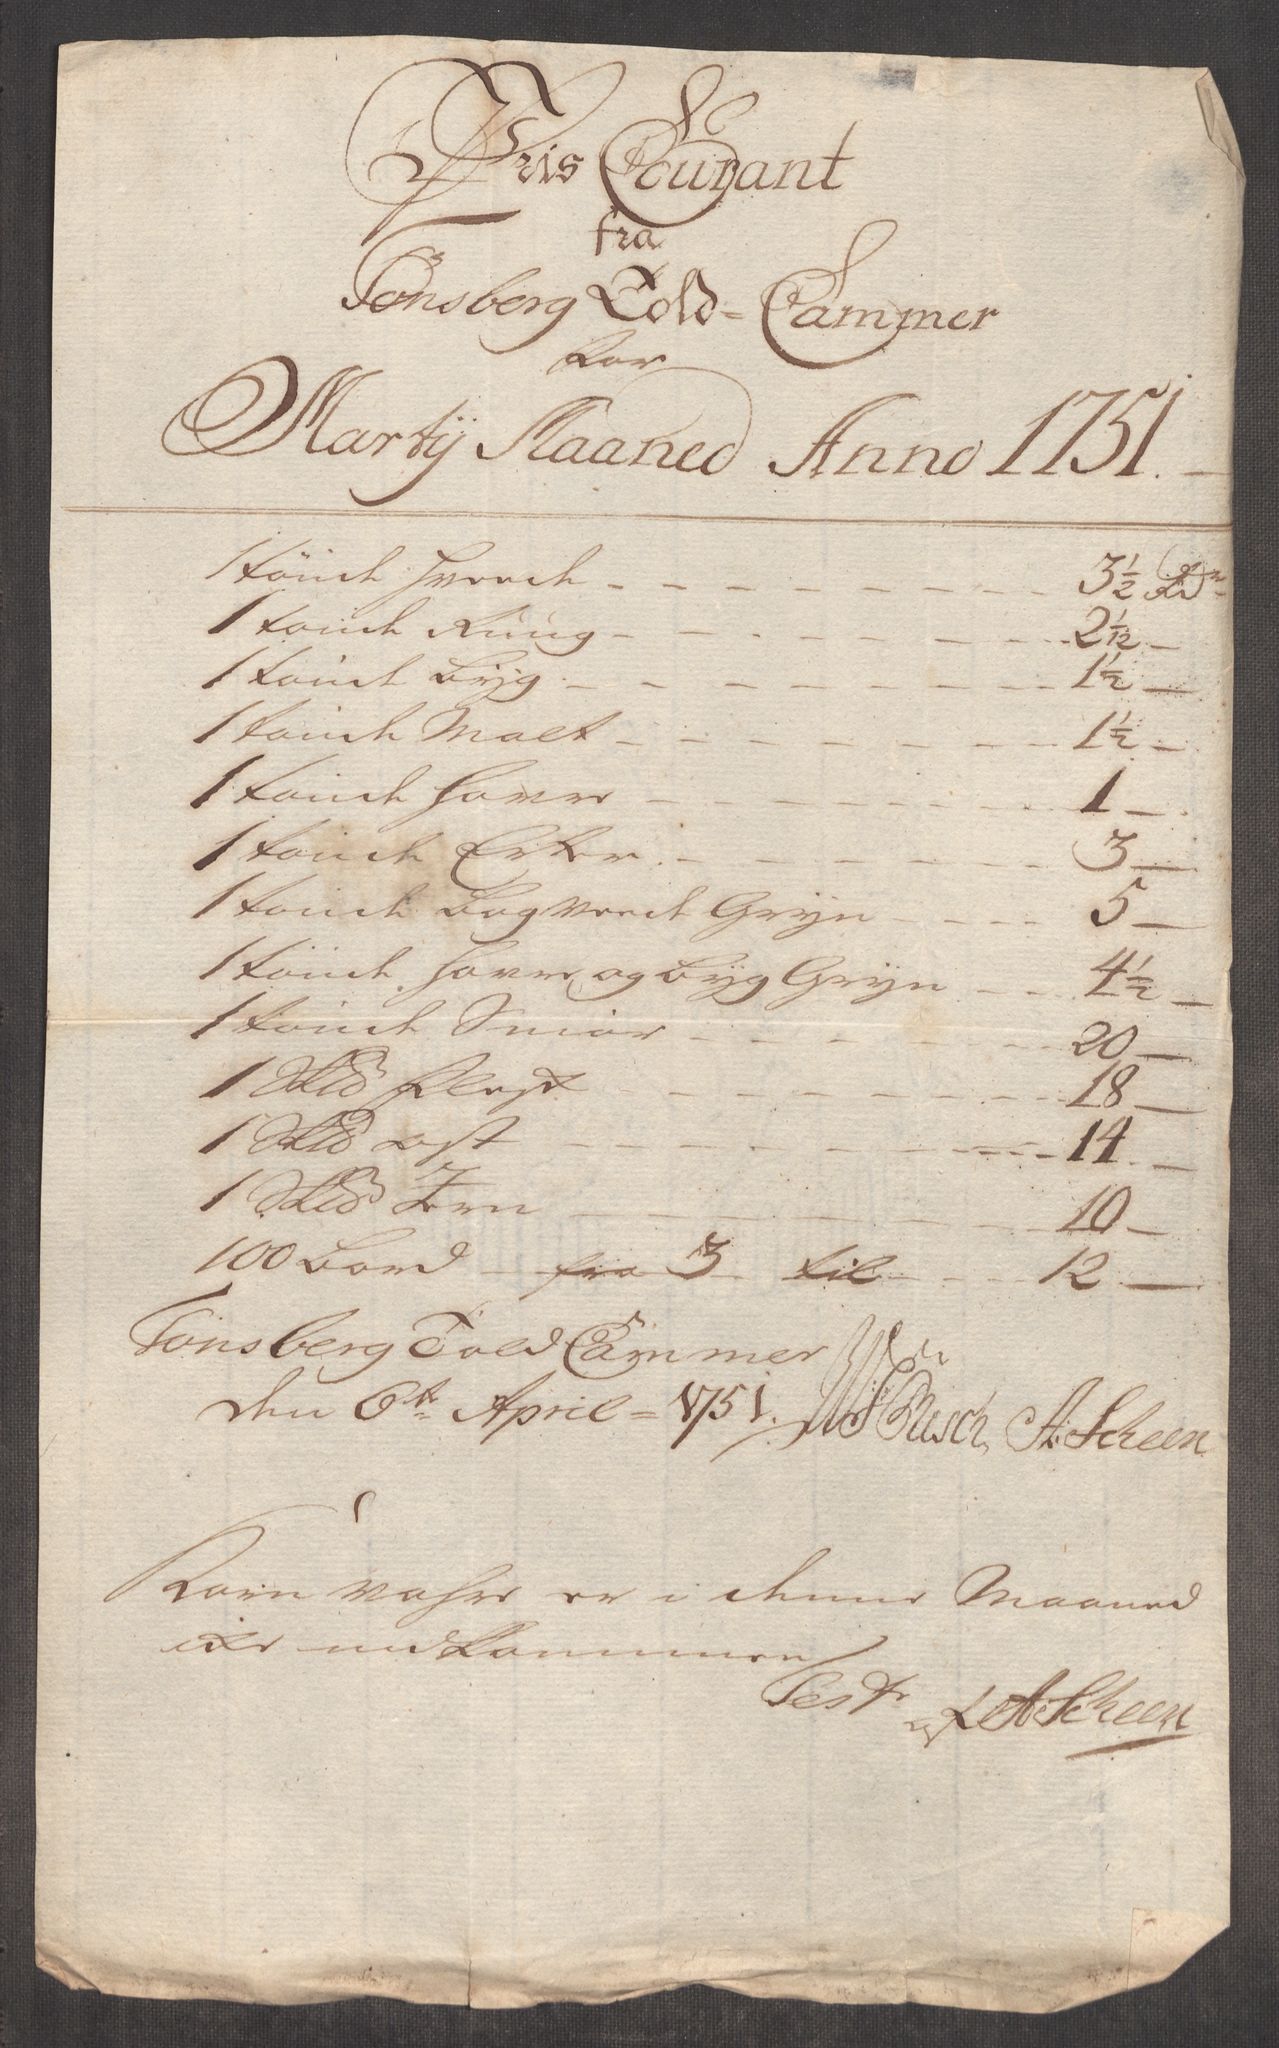 Pris Courant
fra
Tönsberg Told-Cammer
for
Martÿ Maaned Anno 1751.
1 tönde Hveede 3½ Rdr
1 tönde Rüug 2 1/12
1 tönde Bÿg 1½
1 tönde Malt 1½
1 tönde Havre 1
1 tönde Erter 3
1 tönde Boghveede Grÿn 5
1 tönde Havre og Bÿg Grÿn 4½
1 tönde Smiör 20
1 Sk℔ Flesk 18
1 Sk℔ Ost 14
1 Sk℔ Jern 10
100 Bord fra 3 til 12
Tönsberg Told Cammer
den 6te April = 1751. Büsch A: Scheen
Korn vahre er i denne Maaned
icke indkommen
Test A: Scheen